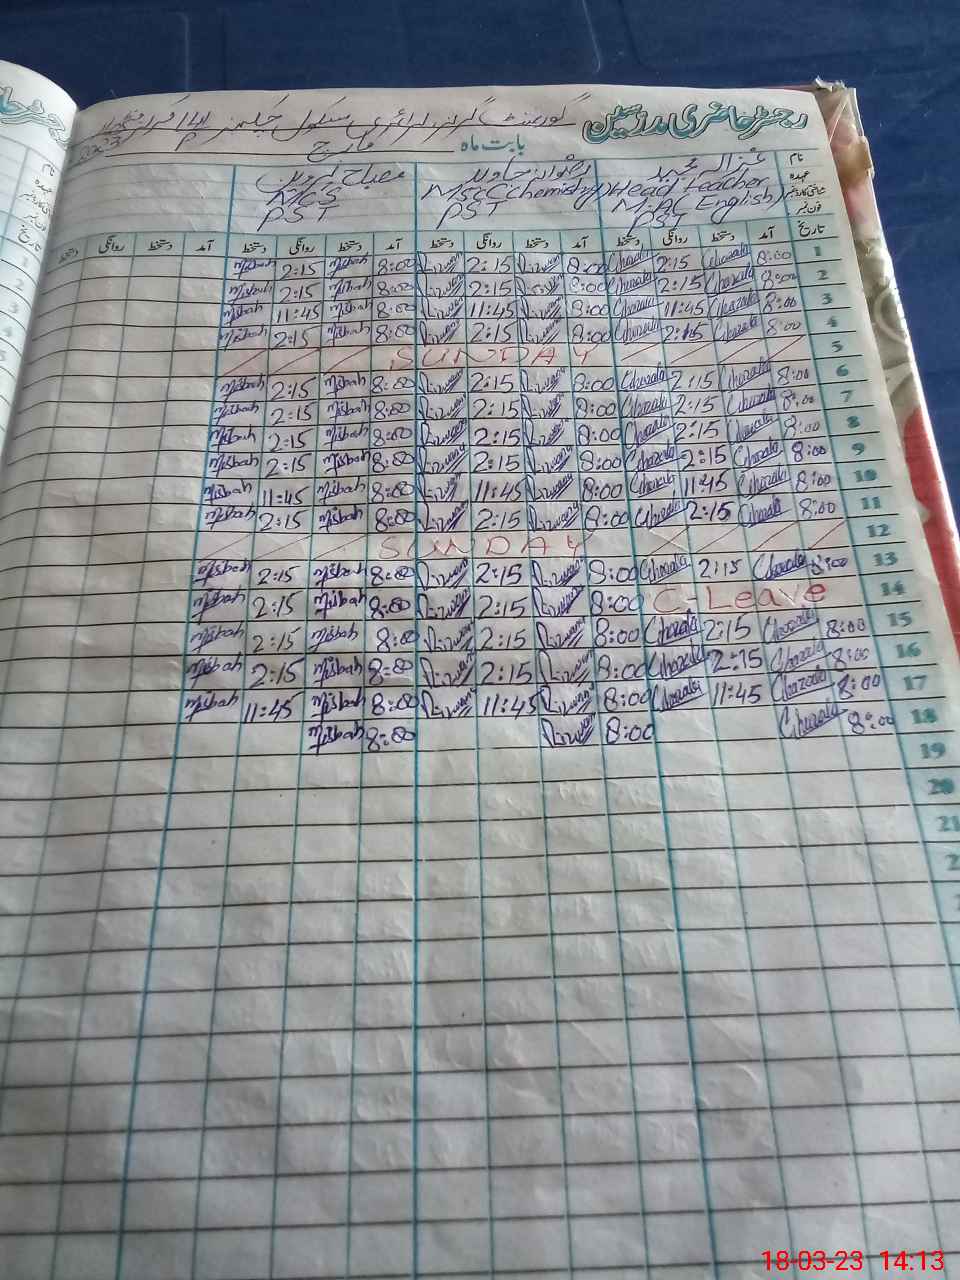 رجسٹر حاضری مدرسین
گورنمنٹ گرلز پرائمری سکول
بابت ماہ مارچ 2023
نام غزالہ مجید رضوانہ جاوید مصباح
عہدہ Head teacher MSc Chemistry MCS
M.A( English)
PST PST PST
فون نمبر
تاریخ آمد دستخط روانگی دستخط آمد دستخط روانگی دستخط آمد دستخط روانگی دستخط آمد دستخط روانگی دستخط
1 8:00 Ghazala 2:15 Ghazala 8:00 Rizwana 2:15 Rizwana 8:00 Misbah 2:15 Misbah
2 8:00 Ghazala 2:15 Ghazala 8:00 Rizwana 2:15 Rizwana 8:00 Misbah 2:15 Misbah
3 8:00 Ghazala 11:45 Ghazala 8:00 Rizwana 11:45 Rizwana 8:00 Misbah 11:45 Misbah
4 8:00 Ghazala 2:15 Ghazala 8:00 Rizwana 2:15 Rizwana 8:00 Misbah 2:15 Misbah
5 SUNDAY
6 8:00 Ghazala 2:15 Ghazala 8:00 Rizwana 2:15 Rizwana 8:00 Misbah 2:15 Misbah
7 8:00 Ghazala 2:15 Ghazala 8:00 Rizwana 2:15 Rizwana 8:00 Misbah 2:15 Misbah
8 8:00 Ghazala 2:15 Ghazala 8:00 Rizwana 2:15 Rizwana 8:00 Misbah 2:15 Misbah
9 8:00 Ghazala 2:15 Ghazala 8:00 Rizwana 2:15 Rizwana 8:00 Misbah 2:15 Misbah
10 8:00 Ghazala 11:45 Ghazala 8:00 Rizwana 11:45 Rizwana 8:00 Misbah 11:45 Misbah
11 8:00 Ghazala 2:15 Ghazala 8:00 Rizwana 2:15 Rizwana 8:00 Misbah 2:15 Misbah
12 SUNDAY
13 8:00 Ghazala 2:15 Ghazala 8:00 Rizwana 2:15 Rizwana 8:00 Misbah 2:15 Misbah
14 C-Leave 8:00 Rizwana 2:15 Rizwana 8:00 Misbah 2:15 Misbah
15 8:00 Ghazala 2:15 Ghazala 8:00 Rizwana 2:15 Rizwana 8:00 Misbah 2:15 Misbah
16 8:00 Ghazala 2:15 Ghazala 8:00 Rizwana 2:15 Rizwana 8:00 Misbah 2:15 Misbah
17 8:00 Ghazala 11:45 Ghazala 8:00 Rizwana 11:45 Rizwana 8:00 Misbah 11:45 Misbah
18 8:00 Ghazala 8:00 Rizwana 8:00 Misbah
19
20
21
18-03-23 14:13